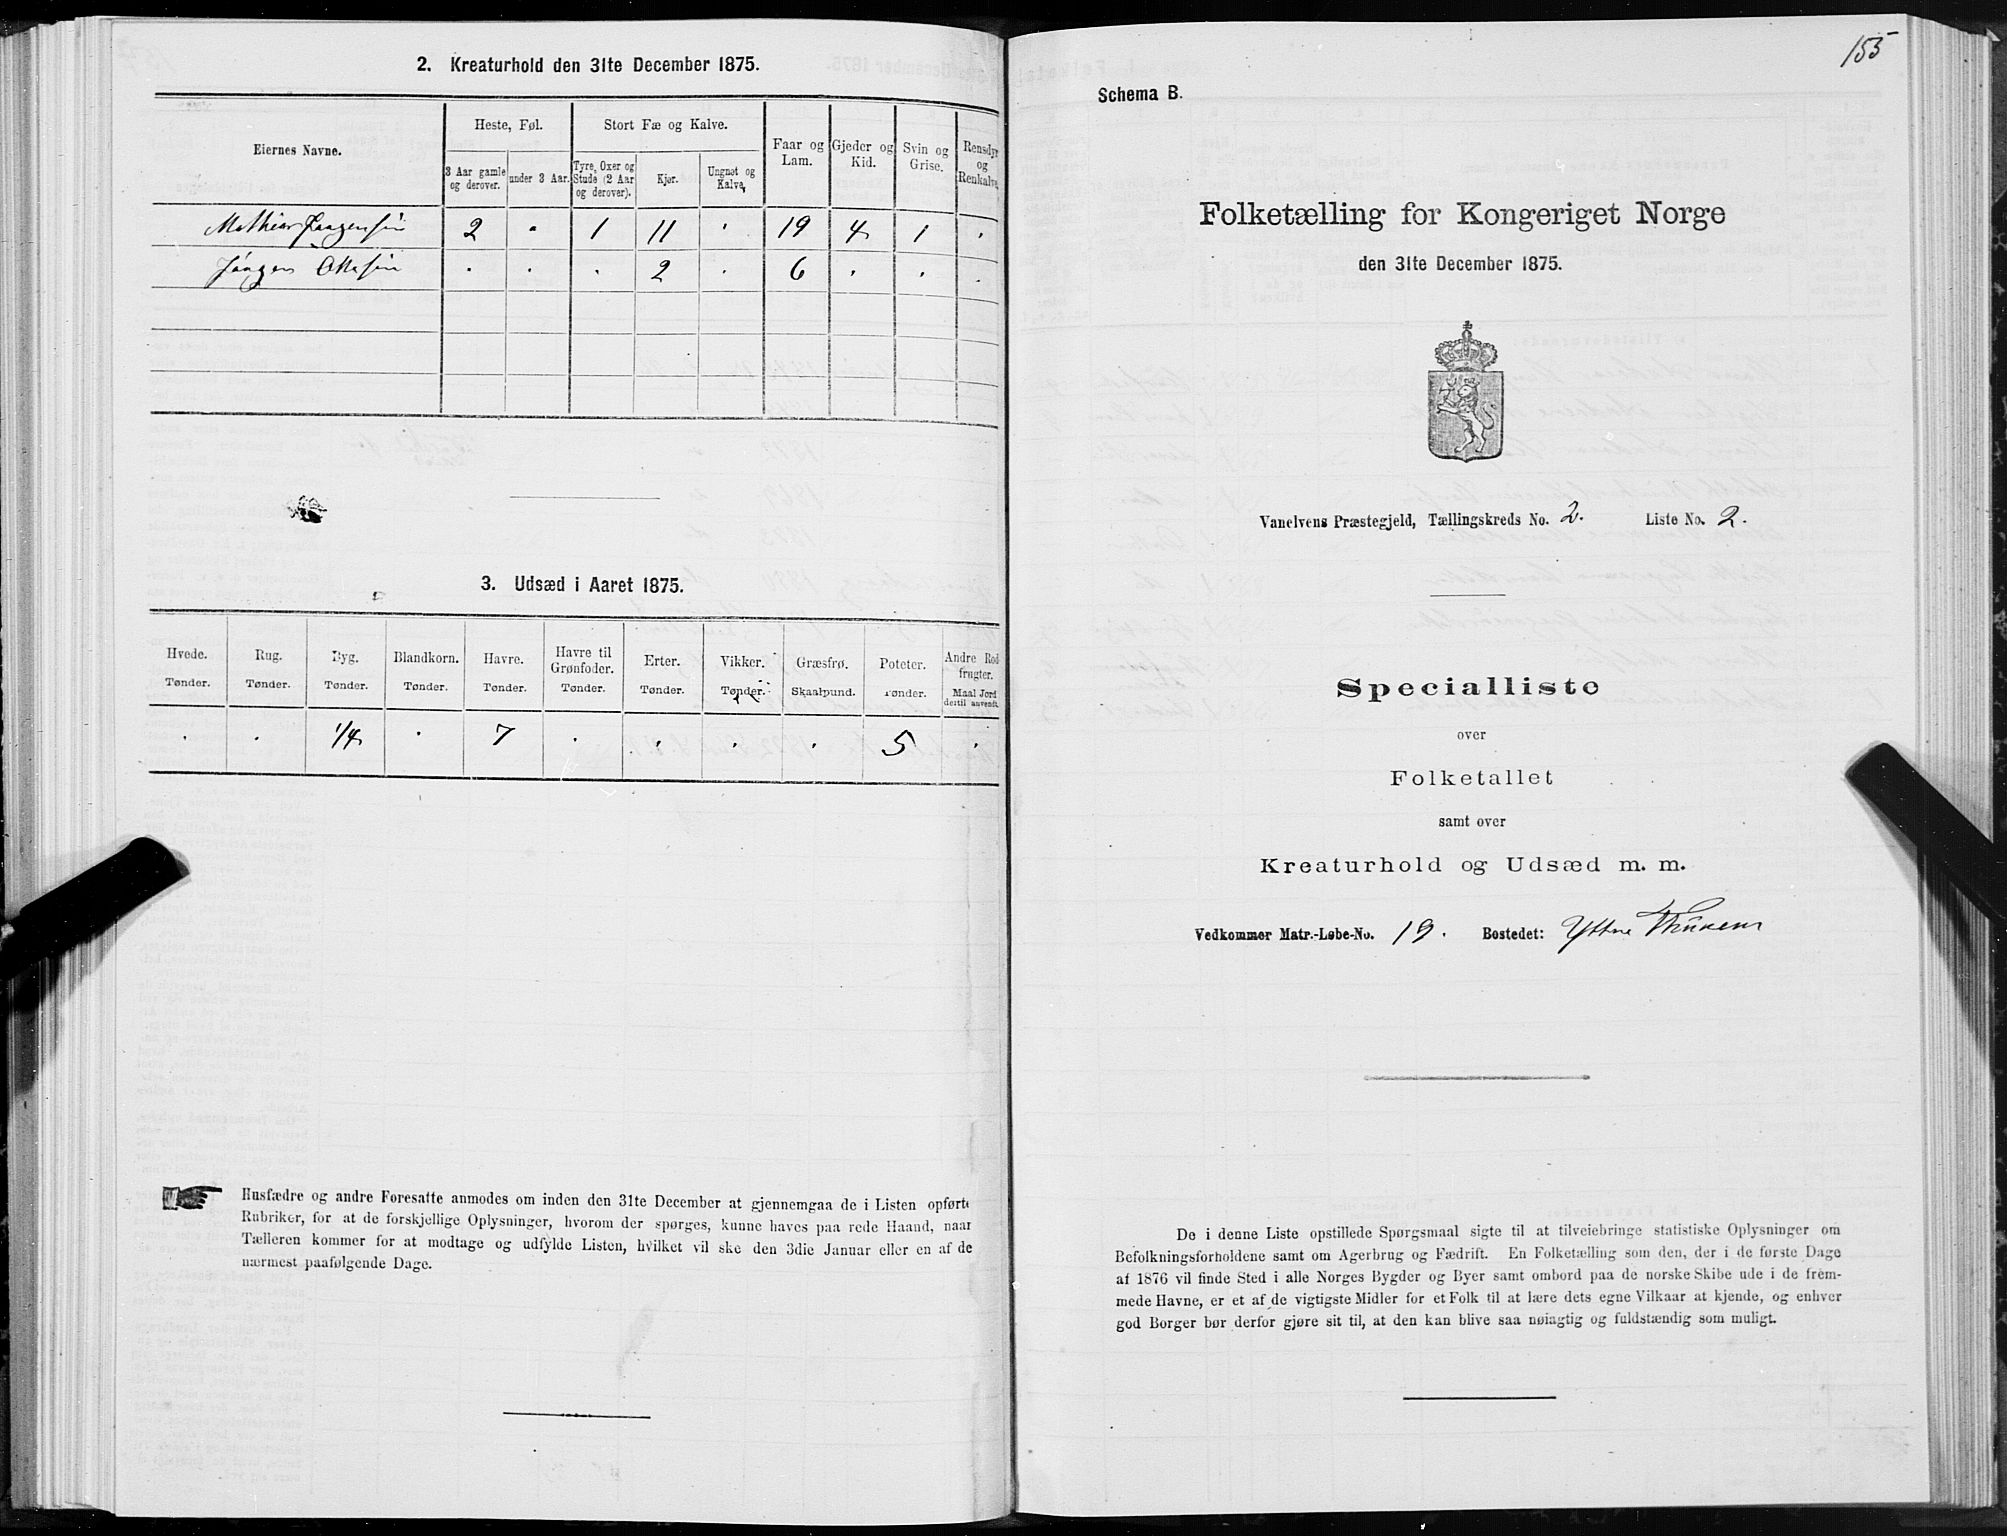 2. Kreaturhold den 31te December 1875.
Eiernes Navne.
Heste, Føl.
Stort Fæ og Kalve.
Faar og Lam.
Gjeder og Kid.
Svin og Grise.
Rensdyr og Renkalve.
3 Aar gamle og derover.
under 3 Aar.
Tyre, Oxer og Stude (2 Aar og derover).
Kjør.
Ungnøt og Kalve.
Mathias Jaagensøn 2 " 1 11 . 19 4 1 .
Jaagen Ottesøn . . . 2 . 6 . . .
3. Udsæd i Aaret 1875.
Hvede. Rug. Byg. Blandkorn. Havre. Havre til Grønfoder. Erter. Vikker. Græsfrø. Poteter. Andre Rodfrugter.
Tønder. Tønder. Tønder. Tønder. Tønder. Tønder. Tønder. Tønder. Skaalpund. Tønder. Maal Jord dertil anvendt.
. . 1/4 . 7 . . . . 5 .
Husfædre og andre Foresatte anmodes om inden den 31te December at gjennemgaa de i Listen opførte
Rubriker, for at de forskjellige Oplysninger, hvorom der spørges, kunne haves paa rede Haand, naar
Tælleren kommer for at modtage og udfylde Listen, hvilket vil ske den 3die Januar eller en af de
nærmest paafølgende Dage.
155
Schema B.
Folketælling for Kongeriget Norge
den 31te December 1875.
Vanelvens Præstegjeld, Tællingskreds No. 2. Liste No. 2.
Specialliste
over
Folketallet
samt over
Kreaturhold og Udsæd m. m.
Vedkommer Matr.-Løbe-No. 19. Bostedet: Yttre
De i denne Liste opstillede Spørgsmaal sigte til at tilveiebringe statistiske Oplysninger om
Befolkningsforholdene samt om Agerbrug og Fædrift. En Folketælling som den, der i de første Dage
af 1876 vil finde Sted i alle Norges Bygder og Byer samt ombord paa de norske Skibe ude i de frem-
mede Havne, er et af de vigtigste Midler for et Folk til at lære dets egne Vilkaar at kjende, og enhver
god Borger bør derfor gjøre sit til, at den kan blive saa nøiagtig og fuldstændig som muligt.